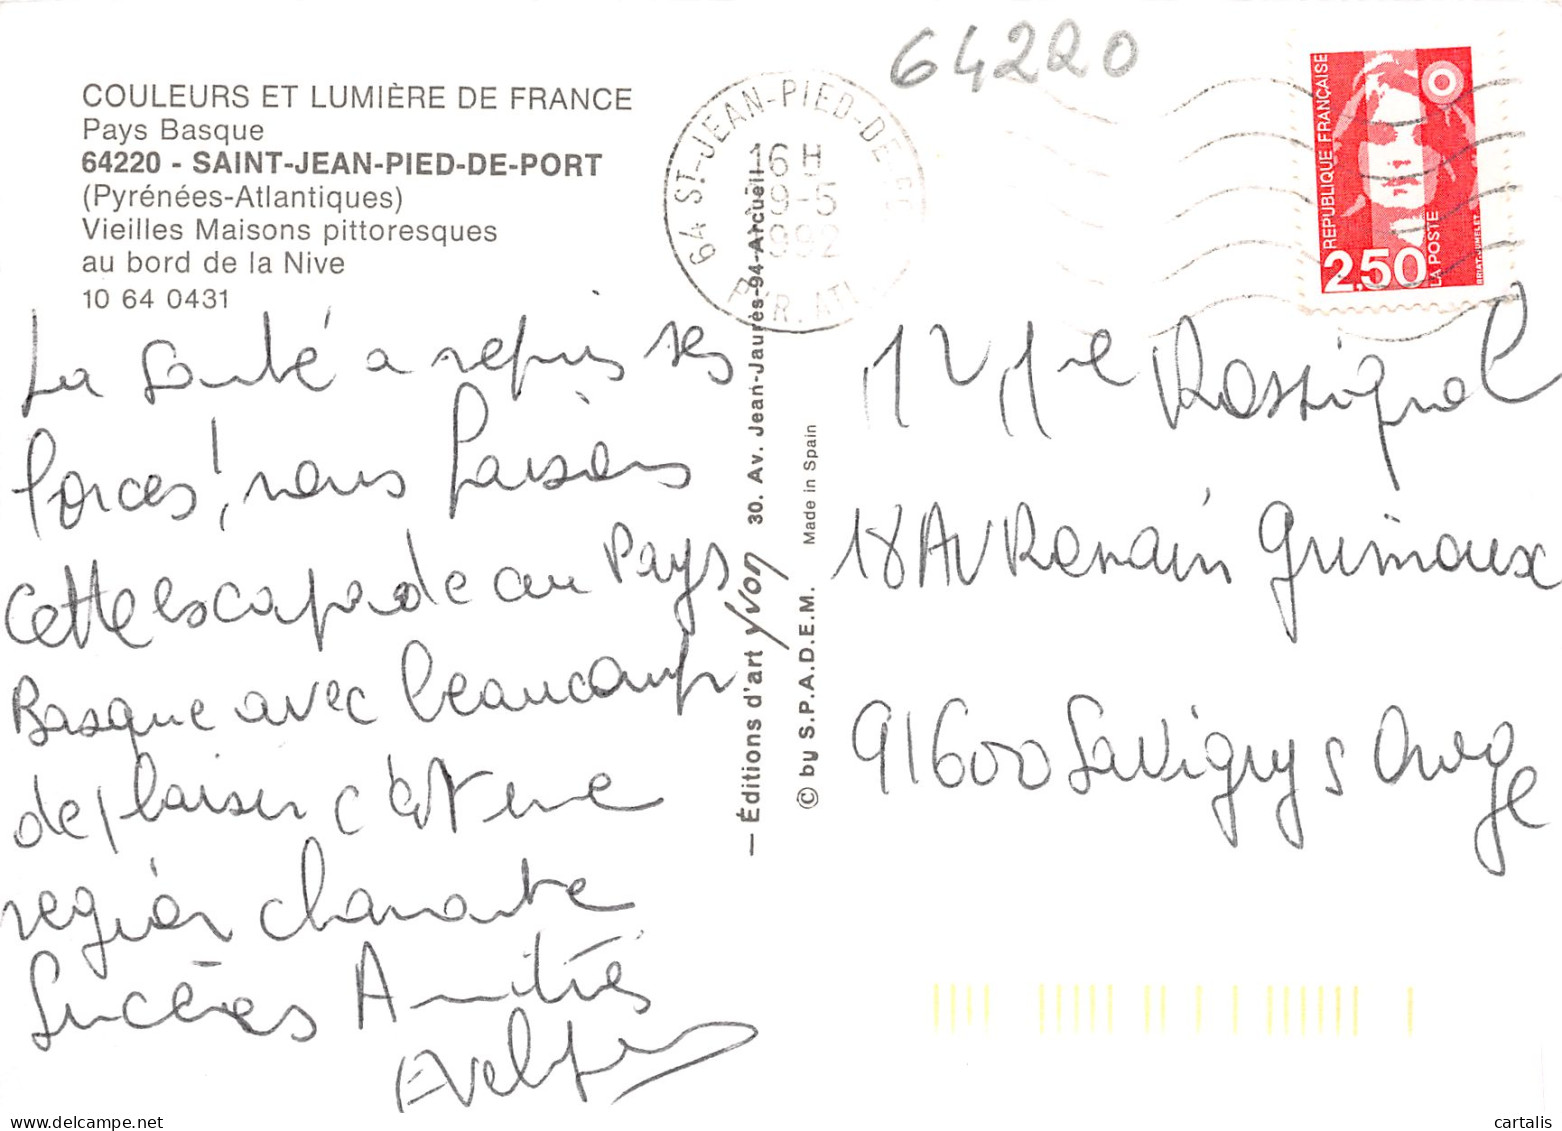 64220
COULEURS ET LUMIÈRE DE FRANCE
Pays Basque
64220 - SAINT-JEAN-PIED-DE-PORT
(Pyrénées-Atlantiques)
Vieilles Maisons pittoresques
au bord de la Nive
10 64 0431
64 ST-JEAN-PIED-DE-
16 H
9-5
1992
PYR. ATL
REPUBLIQUE FRANÇAISE
2.50
LA POSTE
BRIAT-JUMELET
La Santé a repris ses
forces!, nous faisons
cette escapade au Pays
Basque avec beaucoup
de plaisir c'est une
région charmante
Sincères Amitiés
— Éditions d'art yvon 30. Av. Jean-Jaurès-94-Arcueil
© by S.P.A.D.E.M. Made in Spain
Rossignol
18 AV Romain
91600 Savigny s Orge
cartalis